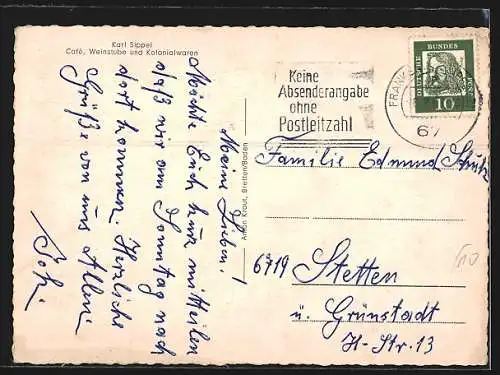 Karl Sippel
Café, Weinstube und Kolonialwaren
Meine Lieben!
Möchte Euch kurz mitteilen
daß wir am Sonntag nach
dort kommen. Herzliche
Grüße von uns Allen
Anton Kraut, Bretten/Baden
Keine
Absenderangabe
ohne
Postleitzahl
FRANK
67
DEUTSCHE BUNDESPOST
10
Familie Edmund Schütz
6719 Stetten
ü. Grünstadt
H-Str. 13